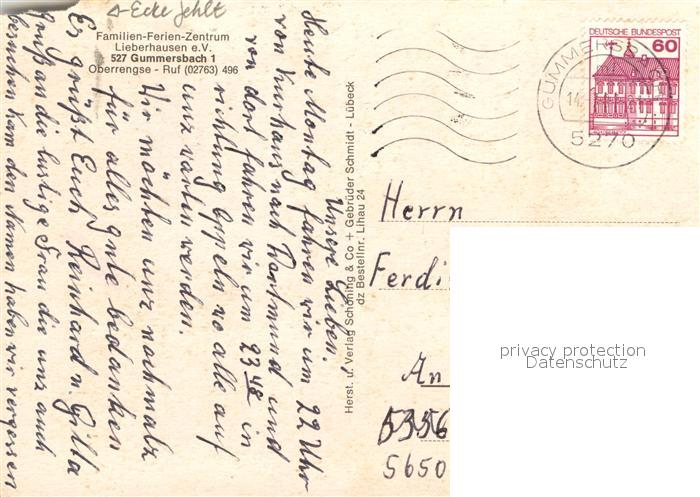 Ecke fehlt
Familien-Ferien-Zentrum
Lieberhausen e.V.
527 Gummersbach 1
Oberrengse - Ruf (02763) 496
Unsere Lieben.
Heute Montag fahren wir um 22 Uhr
vom Kurhaus nach Dortmund und
von dort fahren wir um 23 48 in
richtung Oppeln wo alle auf
uns warten werden.
Wir möchten uns nochmals
für alles gute bedanken
Es grüßt Euch Reinhard u. Gitta
Gruß an die lustige Frau die uns auch
besuchen kam den Namen haben wir vergessen
Herst. u. Verlag Schöning & Co + Gebrüder Schmidt - Lübeck
dz Bestellnr. Lihau 24
DEUTSCHE BUNDESPOST
60
GUMMERSB
14.
5270
Herrn
Ferdi
An
5650
privacy protection
Datenschutz